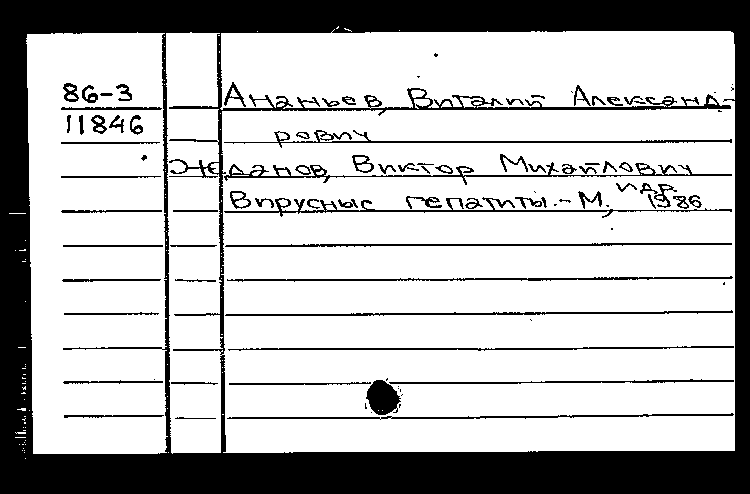 86-3 Ананьев, Виталий Александ-
11846 рович
Жданов, Виктор Михайлович
и др.
Вирусные гепатиты.- М., 1986